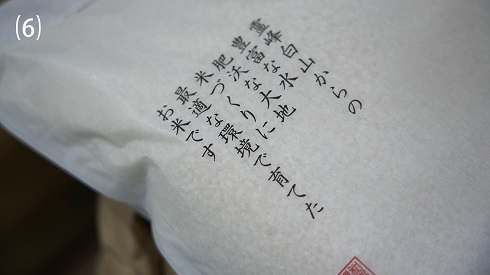 (6)
霊峰白山からの
豊富な水
肥沃な大地
米づくりに
最適な環境で育てた
お米です